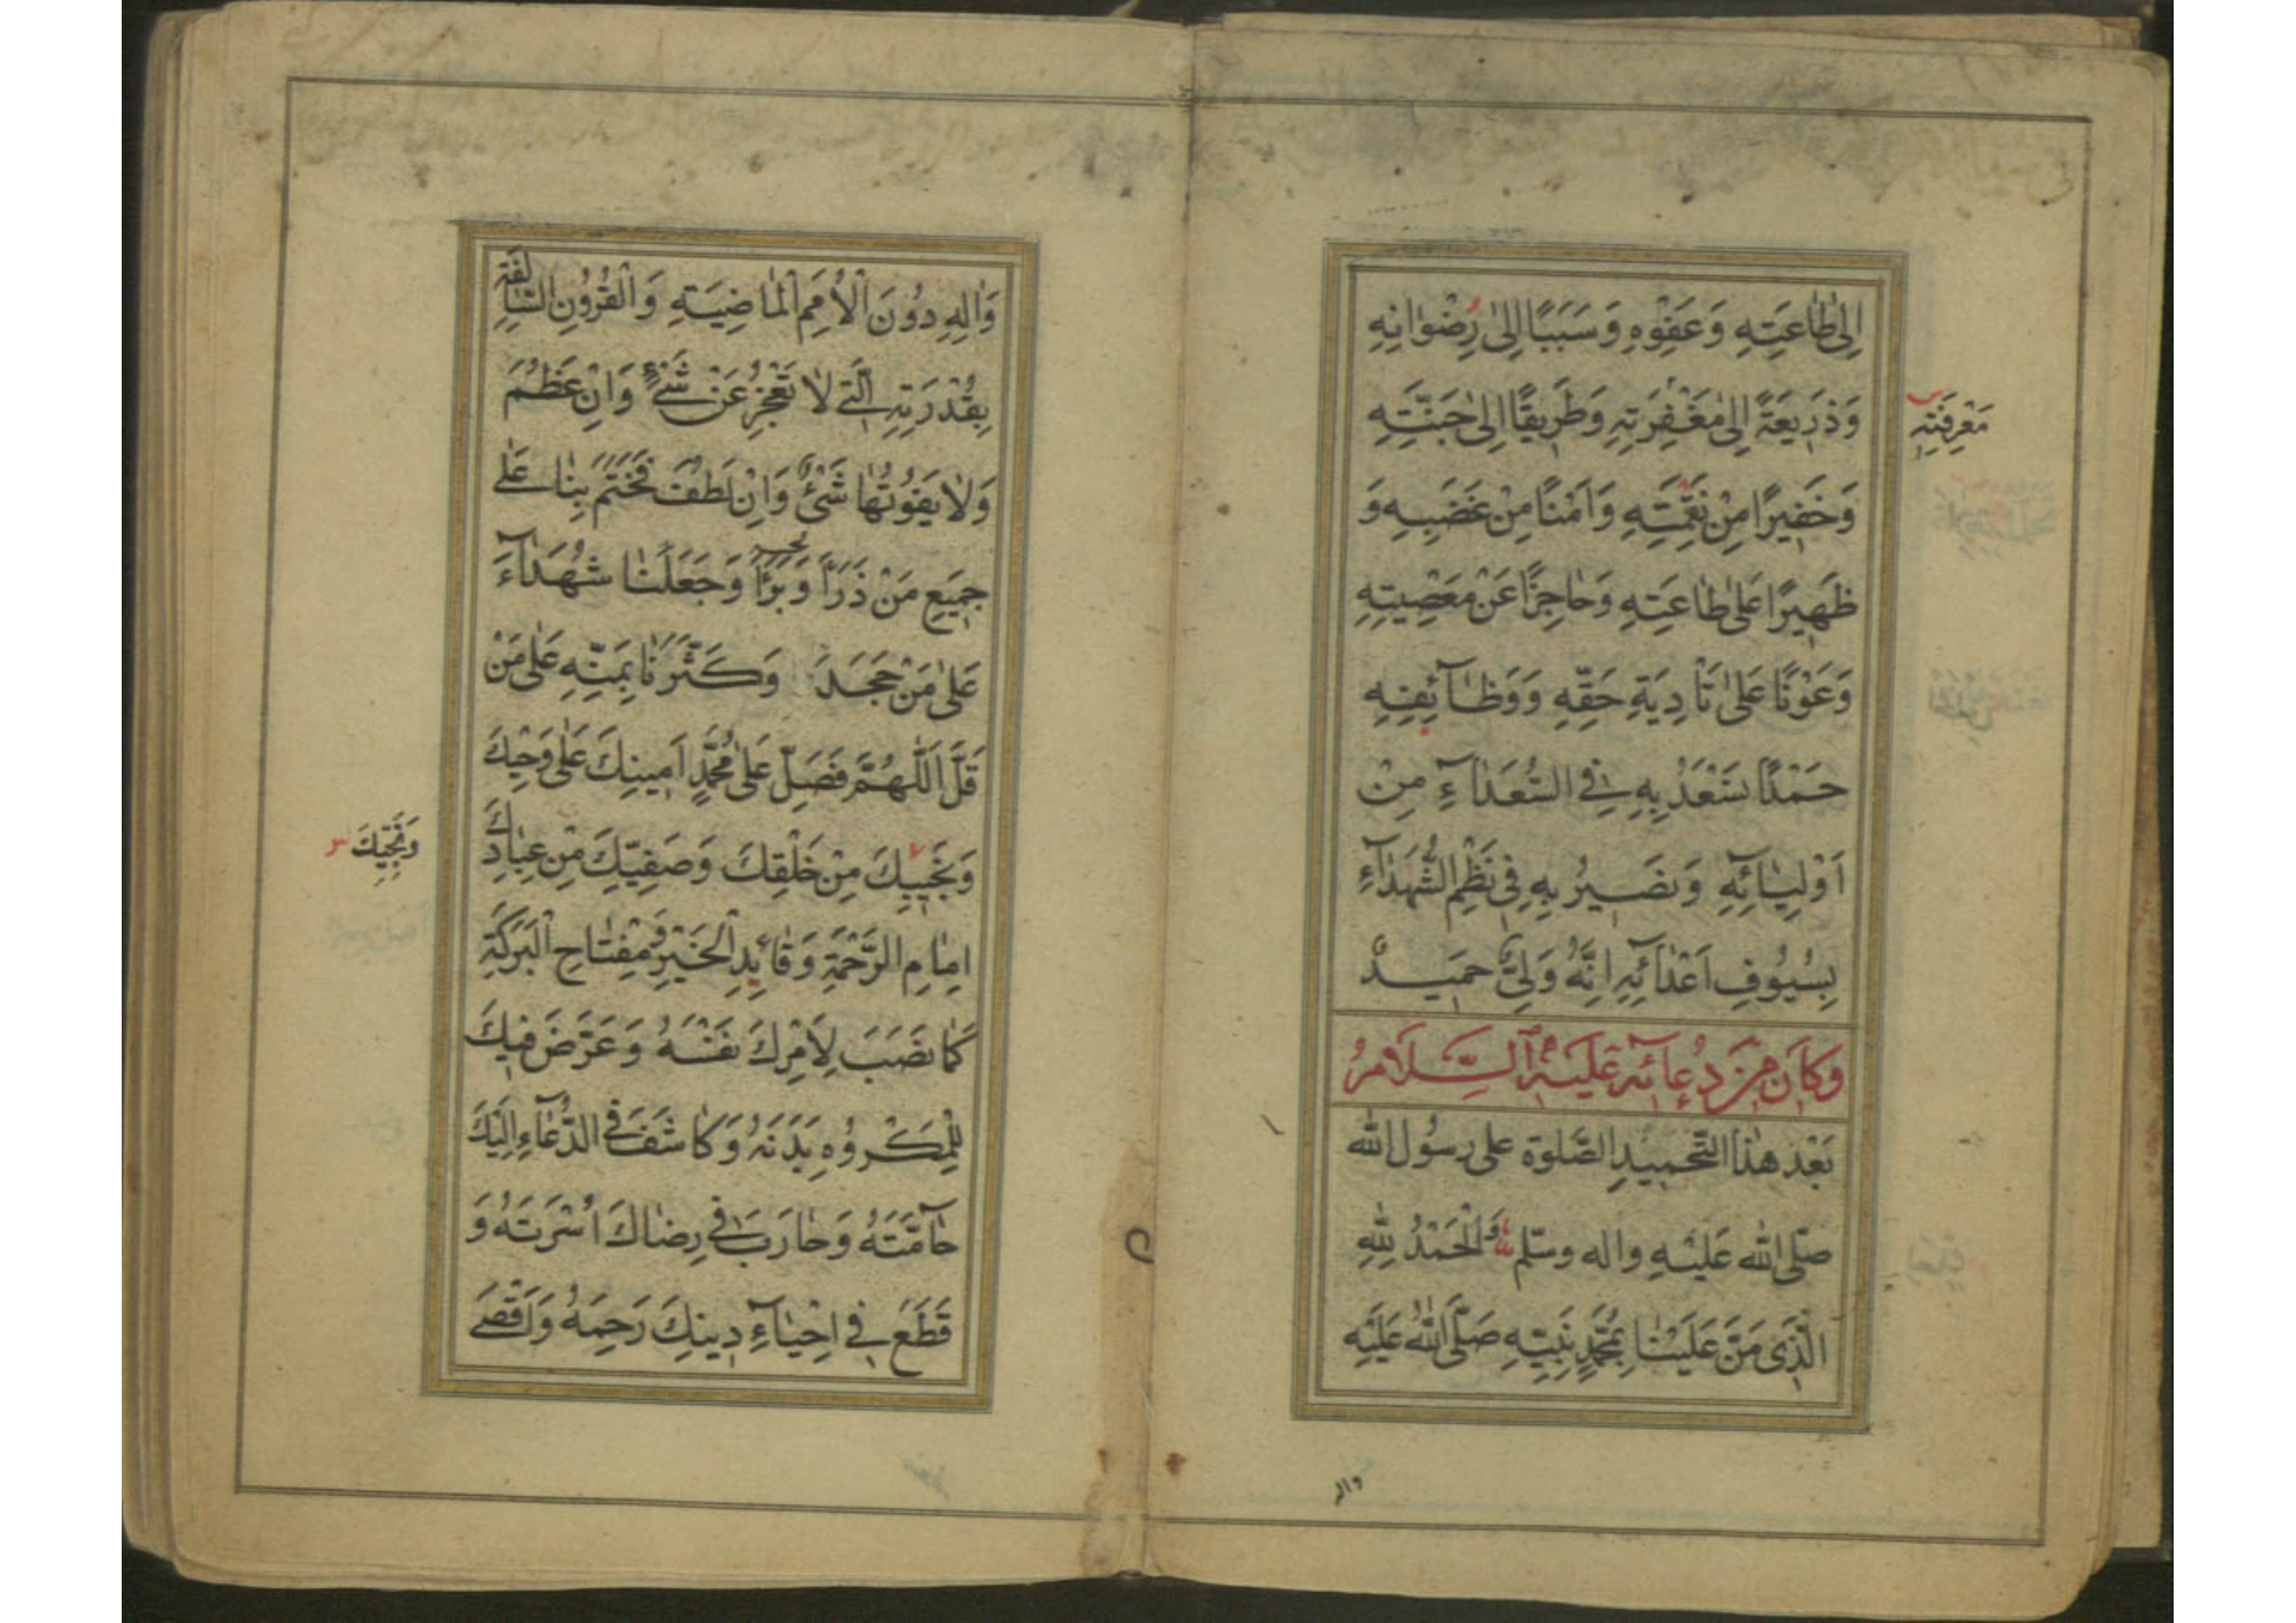 اِلىٰ طٰاعَتِهِ وَعَفْوِهِ وَسَبَبًا اِلىٰ رِضْوٰانِهِ
وَذَرِيعَةً اِلىٰ مَغْفِرَتِهِ وَطَرِيقًا اِلىٰ جَنَّتِهِ
مَعْرِفَتِهِ
وَخَفِيرًا مِنْ نَقِمَتِهِ وَاَمْنًا مِنْ غَضَبِهِ وَ
ظَهِيرًا عَلىٰ طٰاعَتِهِ وَحٰاجِزًا عَنْ مَعْصِيَتِهِ
وَعَوْنًا عَلىٰ تَأدِيَةِ حَقِّهِ وَوَظٰآئِفِهِ
حَمْدًا نَسْعَدُ بِهِ فِي السُّعَدٰآءِ مِنْ
اَوْلِيٰآئِهِ وَنَصِيرُ بِهِ فِي نَظْمِ الشُّهَدٰآءِ
بِسُيُوفِ اَعْدٰآئِهِ اِنَّهُ وَلِيٌّ حَمِيدٌ
وَكَانَ مِنْ دُعَآئِهِ عَلَيْهِ السَّلَامُ
بَعْدَ هٰذَا التَّحْمِيدِ الصَّلوة على رسُول الله
صلّى الله عَلَيْهِ واله وسلّم وَالْحَمْدُ لِلّٰهِ
الَّذِى مَنَّ عَلَيْنٰا بِمُحَمَّدٍ نَبِيِّهِ صَلَّى اللّٰهُ عَلَيْهِ
واله
وَاٰلِهِ دُونَ الْاُمَمِ الْمٰاضِيَةِ وَالْقُرُونِ السّٰالِفَةِ
بِقُدْرَتِهِ الَّتِي لٰا تَعْجِزُ عَنْ شَيْءٍ وَاِنْ عَظُمَ
وَلٰا يَفُوتُهٰا شَيْءٌ وَاِنْ لَطُفَ فَخَتَمَ بِنٰا عَلىٰ
جَمِيعِ مَنْ ذَرَأَ وَبَرَأَ وَجَعَلَنٰا شُهَدٰآءَ
عَلىٰ مَنْ جَحَدَ وَكَثَّرَنٰا بِمَنِّهِ عَلىٰ مَنْ
قَلَّ اَللّٰهُمَّ فَصَلِّ عَلىٰ مُحَمَّدٍ اَمِينِكَ عَلىٰ وَحْيِكَ
وَنَجِيبِكَ مِنْ خَلْقِكَ وَصَفِيِّكَ مِنْ عِبٰادِكَ
وَنَجِيِّكَ
اِمٰامِ الرَّحْمَةِ وَقٰائِدِ الْخَيْرِ وَمِفْتٰاحِ الْبَرَكَةِ
كَمٰا نَصَبَ لِاَمْرِكَ نَفْسَهُ وَعَرَّضَ فِيكَ
لِلْمَكْرُوهِ بَدَنَهُ وَكٰاشَفَ فِي الدُّعٰآءِ اِلَيْكَ
حٰآمَّتَهُ وَحٰارَبَ فِي رِضٰاكَ اُسْرَتَهُ وَ
قَطَعَ فِي اِحْيٰآءِ دِينِكَ رَحِمَهُ وَاَقْصَى